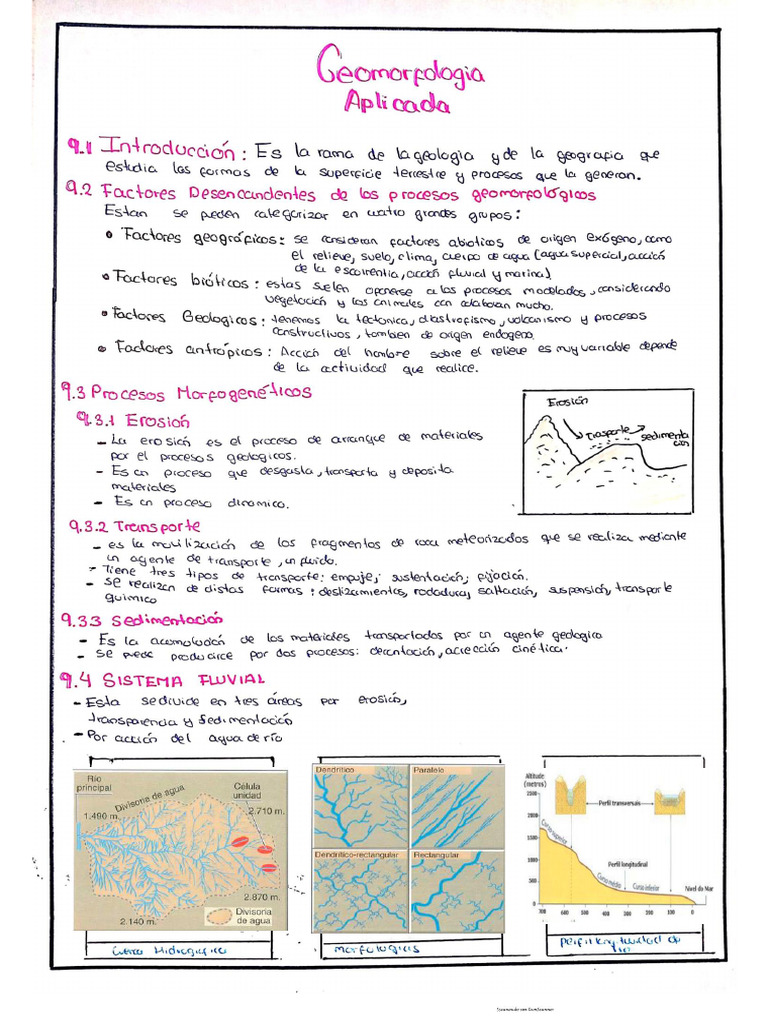 Geomorfologia
Aplicada
9.1 Introducción: Es la rama de la geologia y de la geografia que
estudia las formas de la superficie terrestre y procesos que la generan.
9.2 Factores Desencandentes de los procesos geomorfológicos
Estan se pueden categorizar en cuatro grandes grupos:
• Factores geográficos: se consideran factores abioticos de origen exógeno, como
el relieve, suelo, clima, cuerpo de agua (agua superficial, acción
de la escorrentia, acción fluvial y marina)
• Factores bióticos: estas suelen oponerse a los procesos modelados, considerando
vegetación y los animales con colaboran mucho.
• Factores Geologicos: tenemos la tectonica, diastrofismo, volcanismo y procesos
constructivos, tambien de origen endogeno.
• Factores antrópicos: Acción del hombre sobre el relieve es muy variable depende
de la actividad que realice.
9.3 Procesos Morfogenéticos
9.3.1 Erosión
- La erosión es el proceso de arranque de materiales
por el procesos geologicos.
- Es un proceso que desgasta, transporta y deposita
materiales
- Es un proceso dinamico.
Erosión
Trasporte
sedimenta
ción
9.3.2 Transporte
- es la movilización de los fragmentos de roca meteorizados que se realiza mediante
un agente de transporte, un fluido.
- Tiene tres tipos de transporte: empuje, sustentación, fijación.
- se realizan de distas formas: deslizamientos, rodadura, saltación, suspensión, transporte
quimico
9.3.3 Sedimentación
- Es la acumulación de los materiales transportados por un agente geologico
- se puede producirce por dos procesos: decantación, acrección cinética.
9.4 SISTEMA FLUVIAL
- Esta se divide en tres áreas por erosión,
transparencia y sedimentación
- Por acción del agua de río
Río
principal
Divisoria de agua
Célula
unidad
1.490 m.
2.710 m.
2.870 m.
2.140 m.
Divisoria
de agua
Cuenca Hidrografica
Dendrítico
Paralelo
Dendrítico-rectangular
Rectangular
Morfologias
Altitude
(metros)
2500
2000
1500
1000
500
0
Perfil transversais
Curso superior
Perfil longitudinal
Curso médio
Curso inferior
Nível do Mar
Perfil longitudinal de
rio
Scanneado con CamScanner